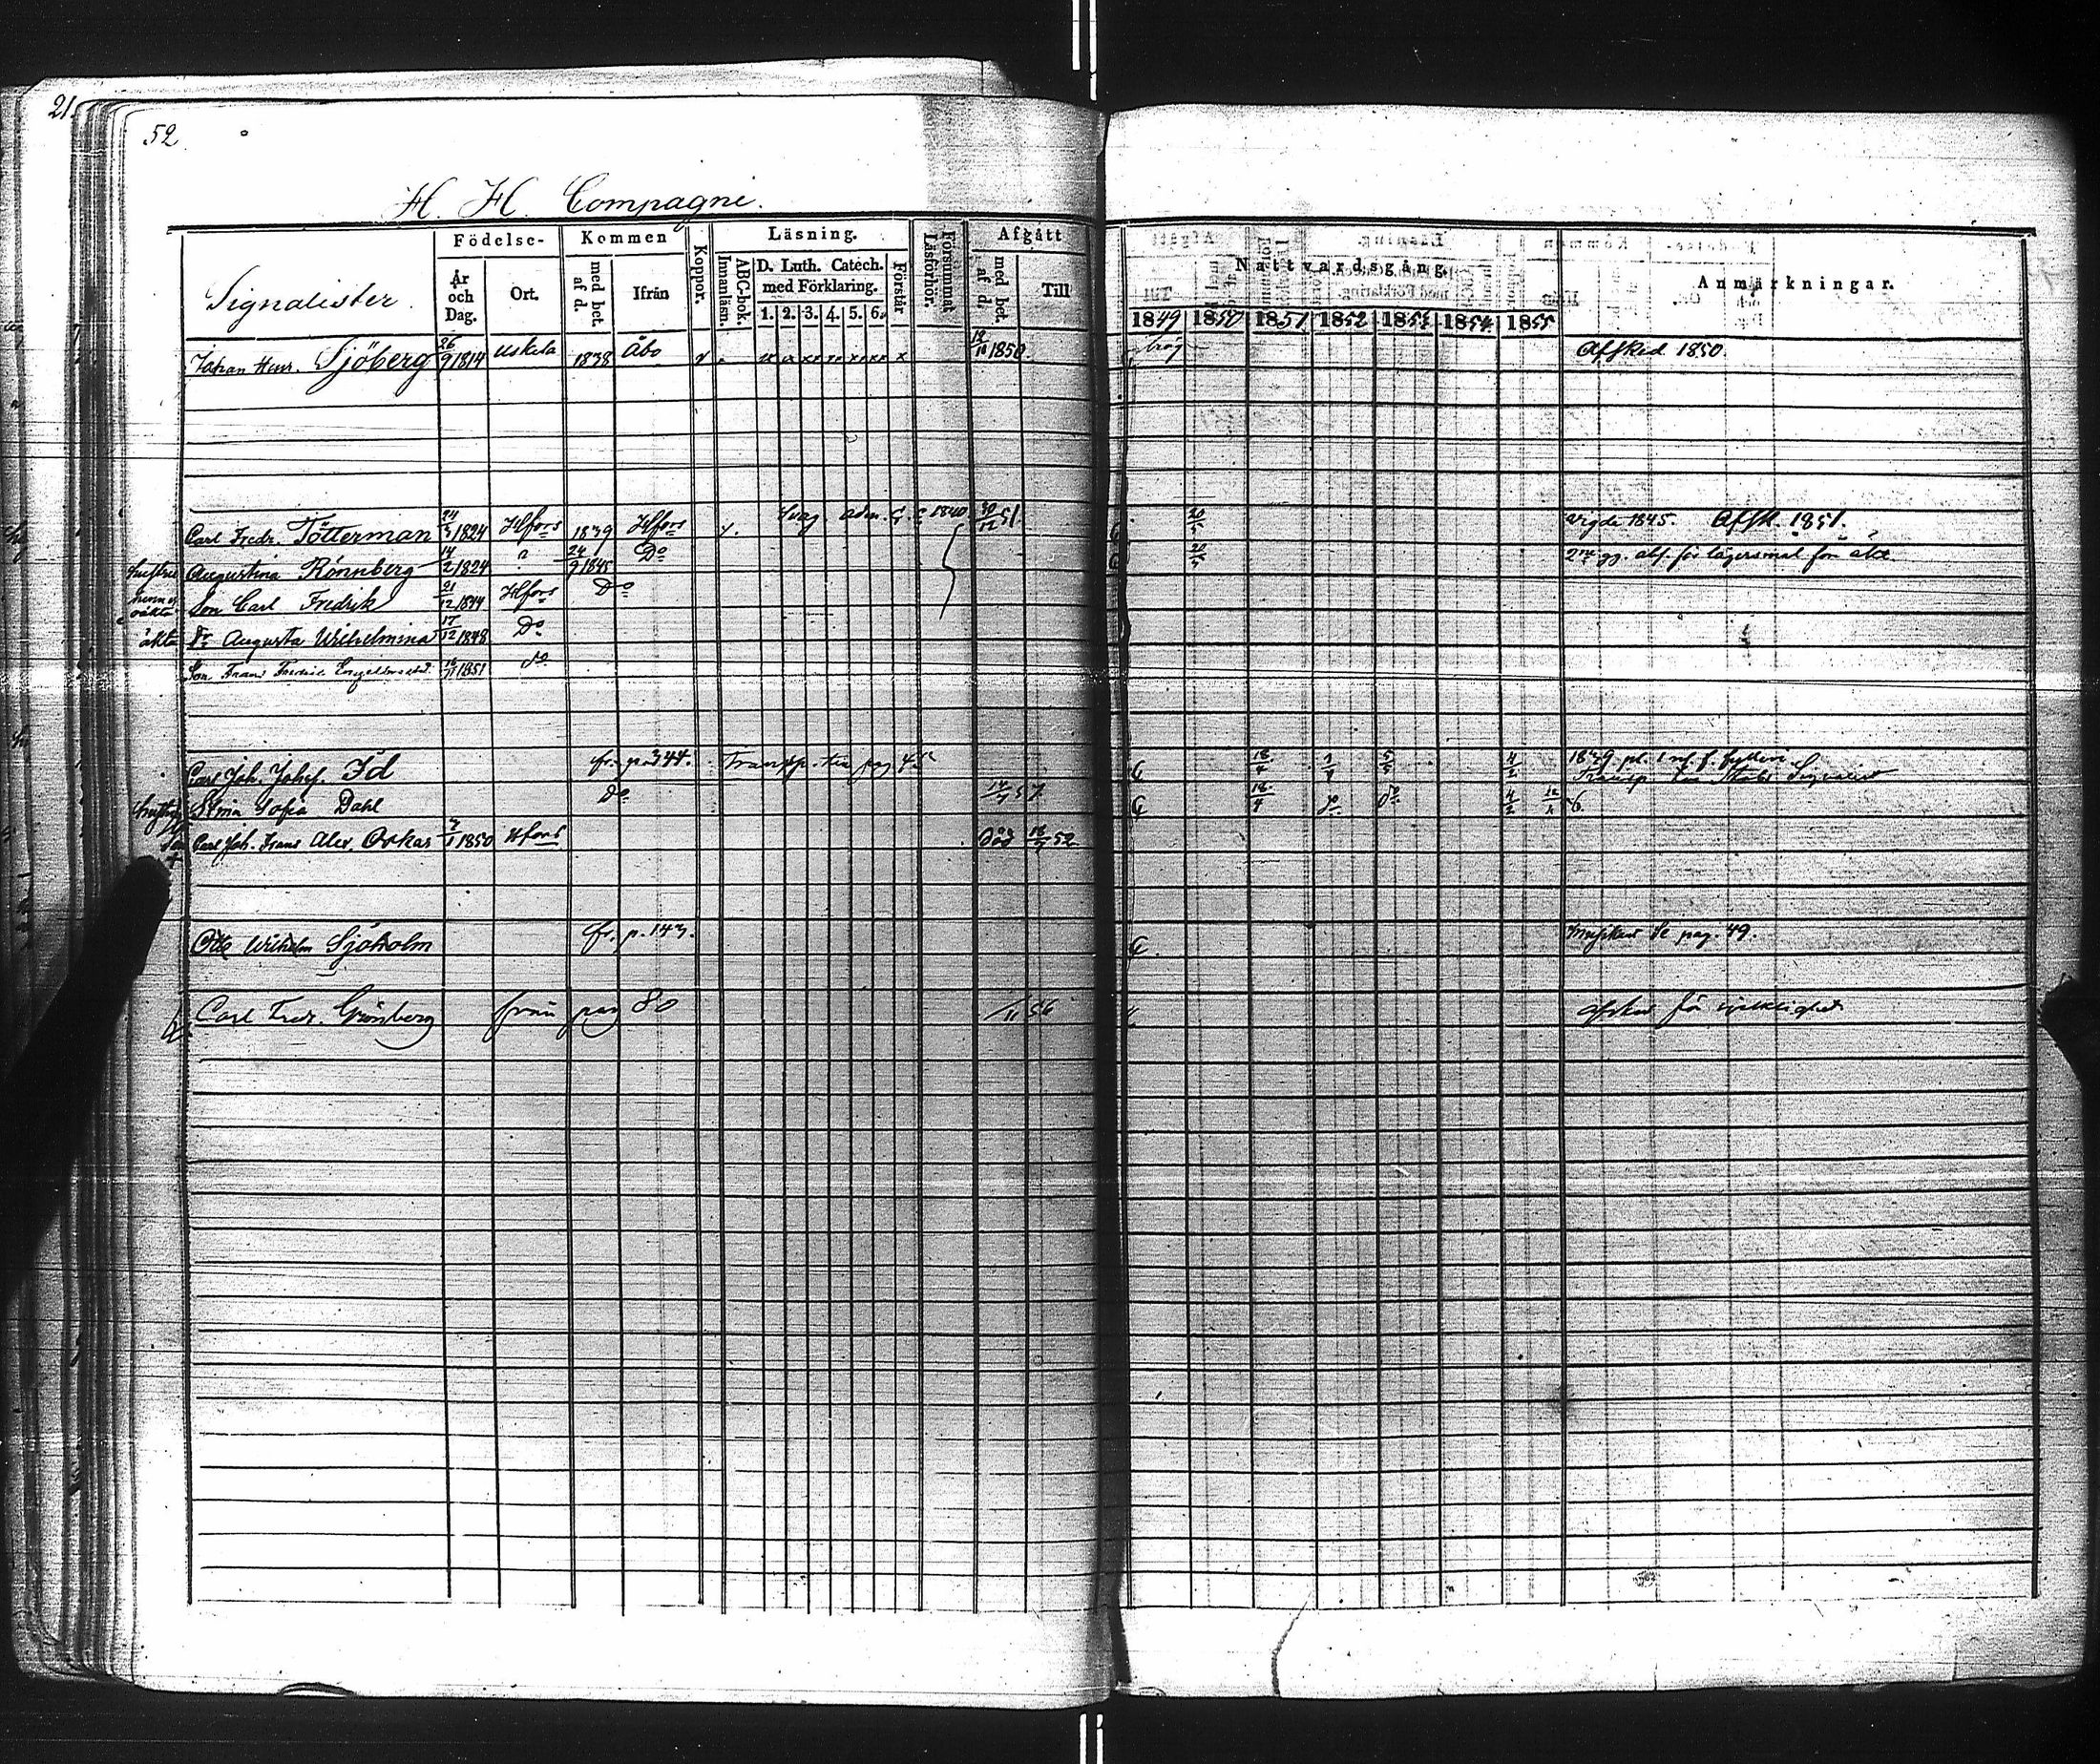 21.
52
H. H. Compagni.
Signalister.
Födelse-
År och Dag.
Ort.
Kommen
med bet. af d.
Ifrån
Koppor.
Läsning.
Innanläsn.
ABC-bok.
D. Luth. Catech. med Förklaring.
1. 2. 3. 4. 5. 6.
Förstår
Försummat Läsförhör.
Afgått
med bet. af d.
Till
Nattvardsgång.
1849 1850 1851 1852 1853 1854 1855
Anmärkningar.
Johan Henr. Sjöberg 26/9 1814 Uskela 1838 Åbo 1850 Afsked 1850.
Carl Fredr. Tötterman 24/3 1824 Hfors 1839 Hfors Svag adm. 1840 30/12 51 20/5 vigde 1845. Afsk. 1851.
hustru Augustina Rönnberg 14/2 1824 24/9 1845 Do 20/5 2ne gg. abs. för lägersmål före äkt.
Son Carl Fredrik 21/12 1844 Hfors Do
äkta Dr Augusta Wilhelmina 17/12 1848 Do
Son Frans Fredric Engelbrecht 1851 do
Carl Joh. Johsf. Id fr. p. 344. Transp. till pag 45 18/4 5/5 4/2 1849 pl. f. fylleri
Transp. till Stabs Signalist
hustru Stina Sofia Dahl Do 14/7 57 18/4 do do 4/2
Son Carl Joh. Frans Alex. Oskar 7/1 1850 Hfors död 52
Otto Wilhelm Sjöholm fr. p. 143. Musikant Se pag. 49.
Carl Fredr. Grönberg från pag 80 /11 56 afsked för sjuklighet